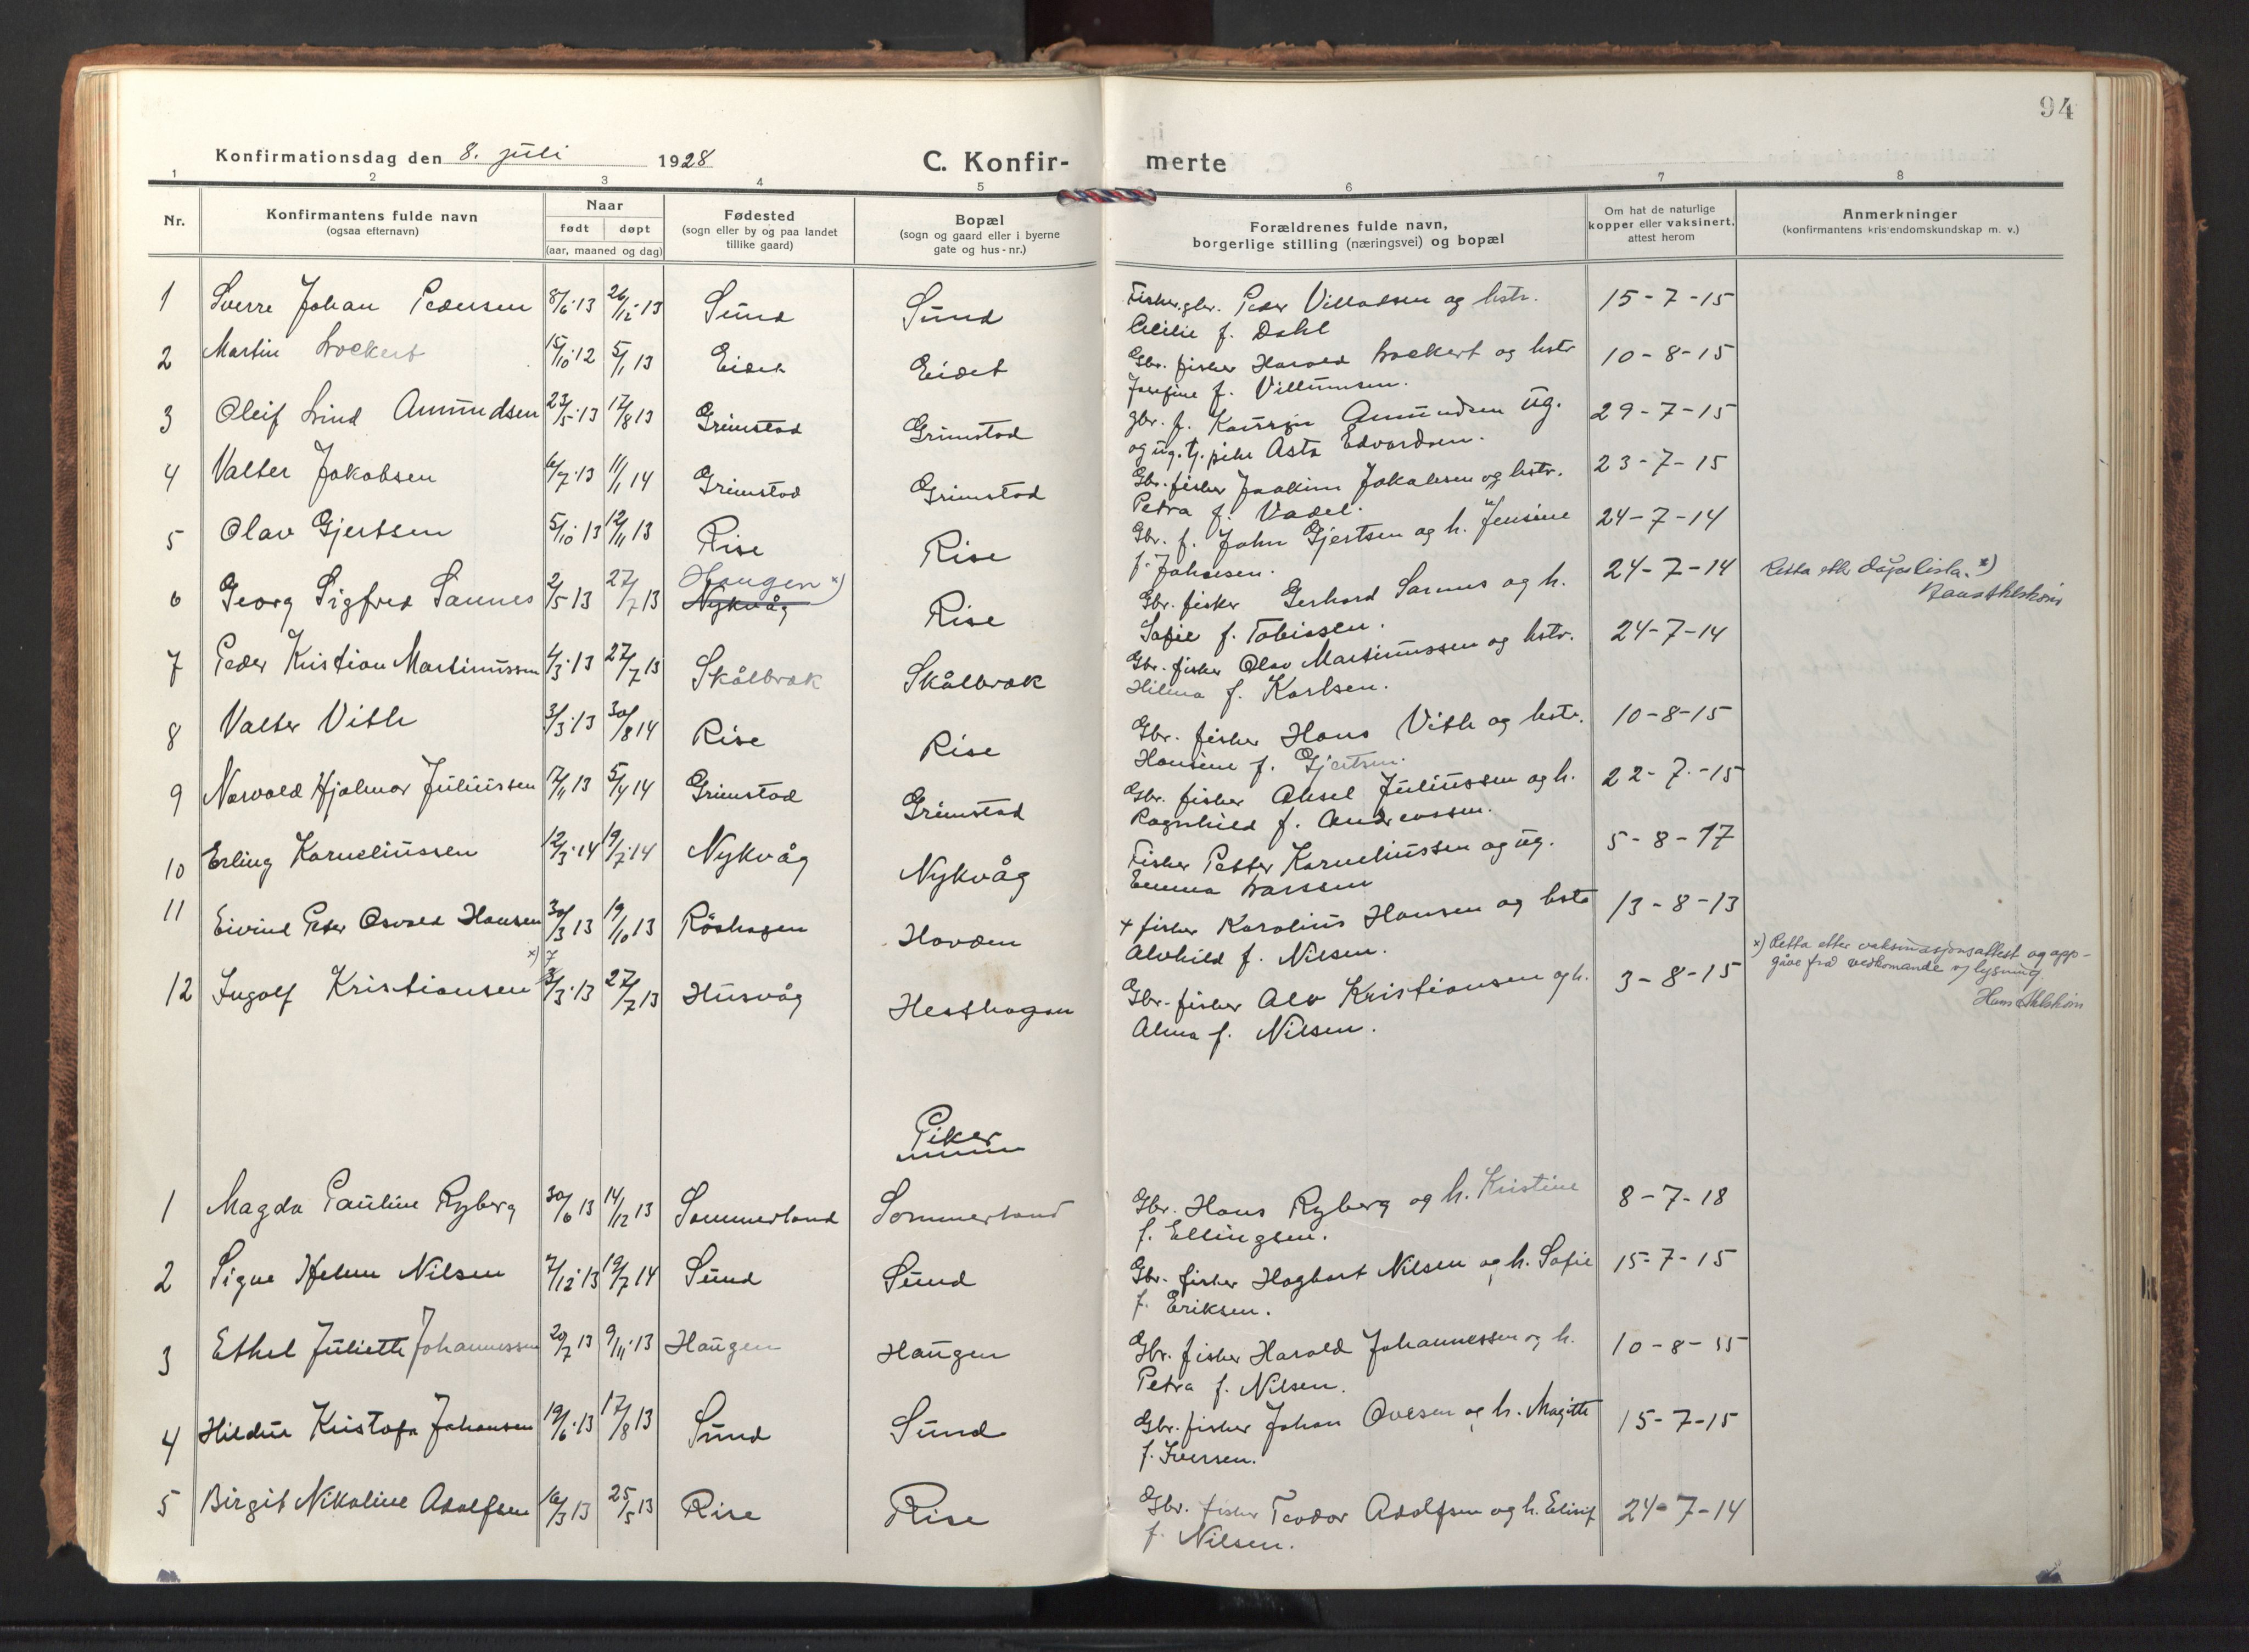 94
Konfirmationsdag den 8. juli 1928 C. Konfir- merte
1 2 3 4 5 6 7 8
Nr. Konfirmantens fulde navn (ogsaa efternavn) Naar født døpt (aar, maaned og dag) Fødested (sogn eller by og paa landet tillike gaard) Bopæl (sogn og gaard eller i byerne gate og hus-nr.) Forældrenes fulde navn, borgerlige stilling (næringsvei) og bopæl Om hat de naturlige kopper eller vaksinert, attest herom Anmerkninger (konfirmantens kristendomskundskap m. v.)
1 Sverre Johan Pedersen 8/6-13 26/12-13 Sund Sund Fisker, gbr. Peder Villadsen og hstr. 15-7-15
Cecilie f. Dahl
2 Martin Lockert 15/10-12 5/1 13 Eidet Eidet Gbr. fisker Harald Lockert og hstr 10-8-15
Josefine f. Villumsen.
3 Oleif Lind Amundsen 23/5-13 17/8 13 Grimstad Grimstad gbr. f. Amundsen ug. 29-7-15
og ug. tj. pike Asta Edvardsen.
4 Valter Jakobsen 6/7-13 11/1 14 Grimstad Grimstad Gbr. fisker Joakim Jakobsen og hstr. 23-7-15
Petra f. Vadel.
5 Olav Gjertsen 5/10 13 12/11 13 Rise Rise Gbr. f. John Gjertsen og h. Jensine 24-7-14
f. Johnsen.
6 Georg Sigfred Sannes 2/5 13 27/7 13 Haugen x) Nykvåg Rise Gbr. fisker Gerhard Sannes og h. 24-7-14 Retta etter dåpslista. x)
Sofie f. Tobiassen.
7 Peder Kristian Martinussen 4/3-13 27/7 13 Skålbrek Skålbrek Gbr. fisker Olav Martinussen og hstr. 24-7-14
Hilma f. Karlsen.
8 Valter Vith 3/3-13 30/8 14 Rise Rise Gbr. fisker Hans Vith og hstr. 10-8-15
Hansine f. Gjertsen.
9 Norvald Hjalmar Juliussen 17/11 13 5/4 14 Grimstad Grimstad Gbr. fisker Aksel Juliussen og h. 22-7-15
Ragnhild f. Andreassen.
10 Erling Korneliussen 12/3-14 19/7-14 Nykvåg Nykvåg Fisker Petter Korneliussen og ug. 5-8-17
Emma Larssen
11 Eivind Peder Osvald Hansen 30/3 13 19/10 13 Röshagen Hovden + fisker Karolius Hansen og hstr 13-8-13
Alvhild f. Nilsen.
x) 7
12 Ingolf Kristiansen /3-13 27/7 13 Husvåg Hesthagen Gbr. fisker Alv Kristiansen og h. 3-8-15 x) Retta etter vaksinasjonsattest og opp-
gåve frå vedkomande og lysning.
Alma f. Nilsen.
Piker
1 Magda Pauline Ryberg 30/6 13 14/12 13 Sommerland Sommerland Gbr. Hans Ryberg og h. Kristine 8-7-18
f. Ellingsen.
2 Signe Helene Nilsen 7/12-13 19/7 14 Sund Sund Gbr. fisker Hagbart Nilsen og h. Sofie 15-7-15
f. Eriksen.
3 Ethel Juliette Johannessen 20/7 13 9/11-13 Haugen Haugen Gbr. fisker Harald Johannessen og h. 10-8-15
Petra f. Nilsen.
4 Hildur Kristofa Johansen 19/6-13 17/8 13 Sund Sund Gbr. fisker Johan Ovesen og h. Magitte 15-7-15
f. Iversen.
5 Birgit Nikoline Adolfsen 16/3 13 25/5 13 Rise Rise Gbr. fisker Teodor Adolfsen og h. Elisif 24-7-14
f. Nilsen.